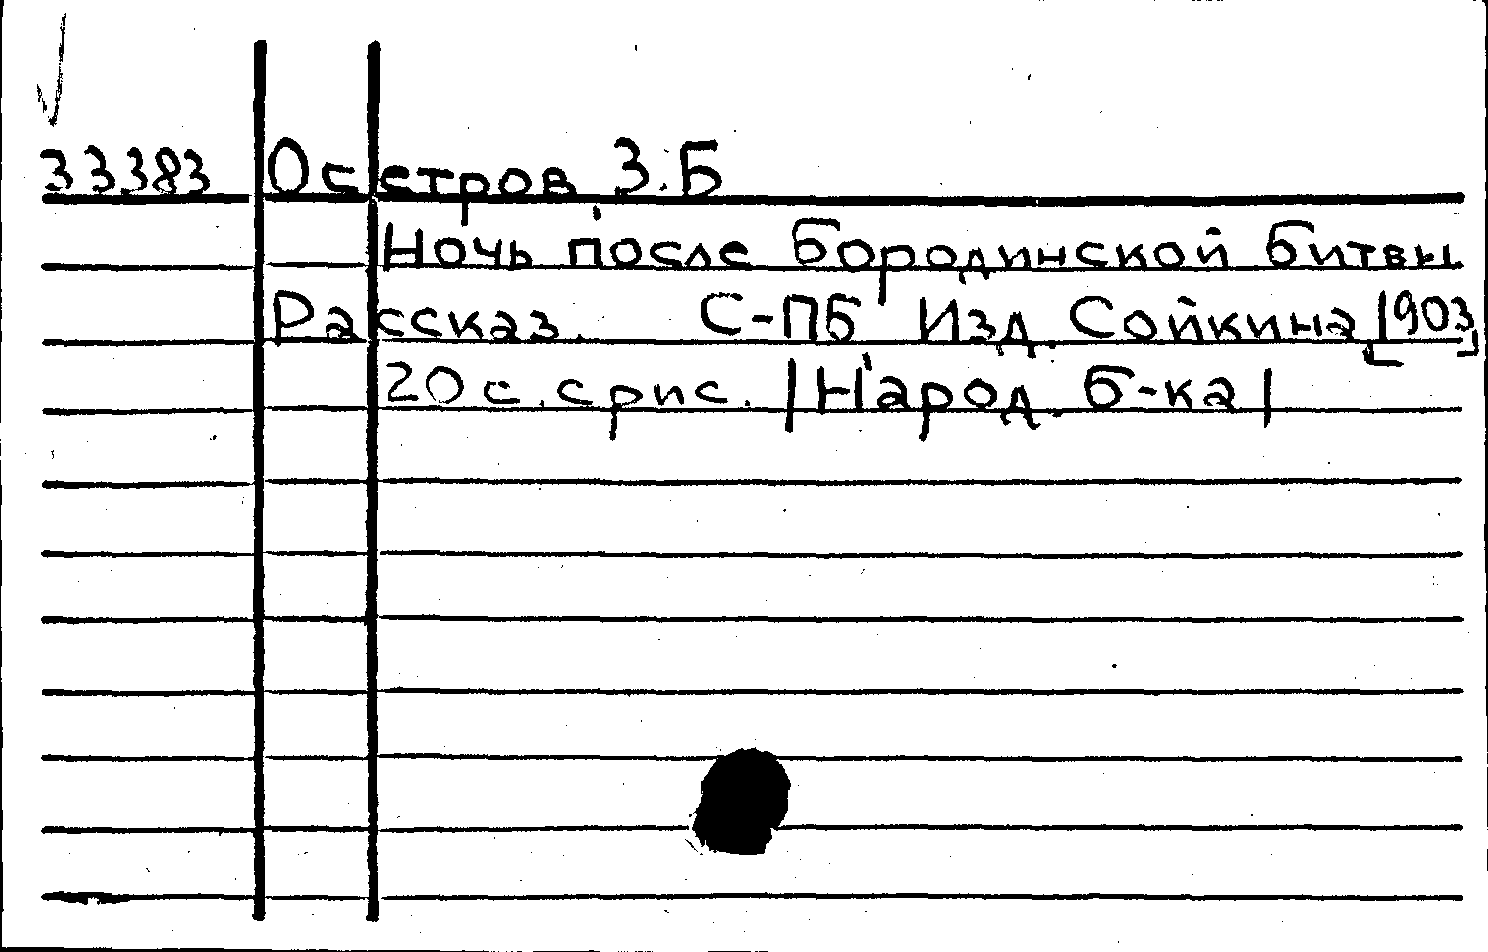 33383 Осетров, З.Б
Ночь после бородинской битвы
Рассказ. С-ПБ, Изд. Сойкина [1903]
20 с. с рис. |Народ. б-ка|